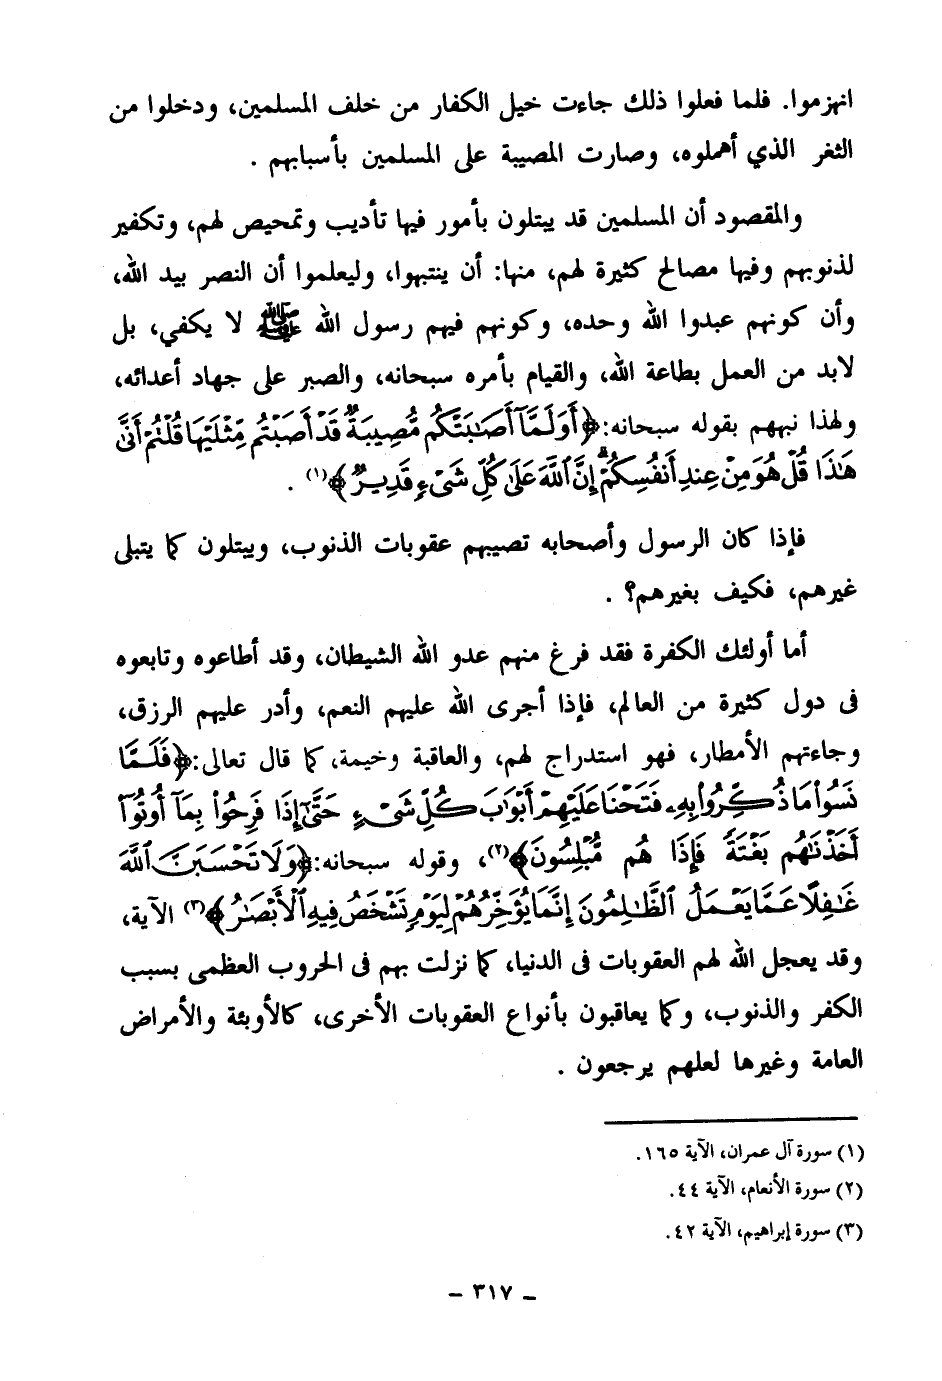 انهزموا. فلما فعلوا ذلك جاءت خيل الكفار من خلف المسلمين، ودخلوا من
الثغر الذي أهملوه، وصارت المصيبة على المسلمين بأسبابهم .
والمقصود أن المسلمين قد يبتلون بأمور فيها تأديب وتمحيص لهم، وتكفير
لذنوبهم وفيها مصالح كثيرة لهم، منها: أن ينتبهوا، وليعلموا أن النصر بيد الله،
وأن كونهم عبدوا الله وحده، وكونهم فيهم رسول الله ﷺ لا يكفي، بل
لابد من العمل بطاعة الله، والقيام بأمره سبحانه، والصبر على جهاد أعدائه،
ولهذا نبههم بقوله سبحانه: ﴿أَوَلَمَّآ أَصَـٰبَتْكُم مُّصِيبَةٌ قَدْ أَصَبْتُم مِّثْلَيْهَا قُلْتُمْ أَنَّىٰ
هَـٰذَا قُلْ هُوَ مِنْ عِندِ أَنفُسِكُمْ ۗ إِنَّ ٱللَّهَ عَلَىٰ كُلِّ شَىْءٍ قَدِيرٌ﴾(١) .
فإذا كان الرسول وأصحابه تصيبهم عقوبات الذنوب، ويبتلون كما يتبلى
غيرهم، فكيف بغيرهم؟ .
أما أولئك الكفرة فقد فرغ منهم عدو الله الشيطان، وقد أطاعوه وتابعوه
فى دول كثيرة من العالم، فإذا أجرى الله عليهم النعم، وأدر عليهم الرزق،
وجاءتهم الأمطار، فهو استدراج لهم، والعاقبة وخيمة، كما قال تعالى: ﴿فَلَمَّا
نَسُوا۟ مَا ذُكِّرُوا۟ بِهِۦ فَتَحْنَا عَلَيْهِمْ أَبْوَٰبَ كُلِّ شَىْءٍ حَتَّىٰٓ إِذَا فَرِحُوا۟ بِمَآ أُوتُوٓا۟
أَخَذْنَـٰهُم بَغْتَةً فَإِذَا هُم مُّبْلِسُونَ﴾(٢)، وقوله سبحانه: ﴿وَلَا تَحْسَبَنَّ ٱللَّهَ
غَـٰفِلًا عَمَّا يَعْمَلُ ٱلظَّـٰلِمُونَ إِنَّمَا يُؤَخِّرُهُمْ لِيَوْمٍ تَشْخَصُ فِيهِ ٱلْأَبْصَـٰرُ﴾(٣) الآية،
وقد يعجل الله لهم العقوبات فى الدنيا، كما نزلت بهم فى الحروب العظمى بسبب
الكفر والذنوب، وكما يعاقبون بأنواع العقوبات الأخرى، كالأوبئة والأمراض
العامة وغيرها لعلهم يرجعون .
(١) سورة آل عمران، الآية ١٦٥.
(٢) سورة الأنعام، الآية ٤٤.
(٣) سورة إبراهيم، الآية ٤٢.
ـ ٣١٧ ـ